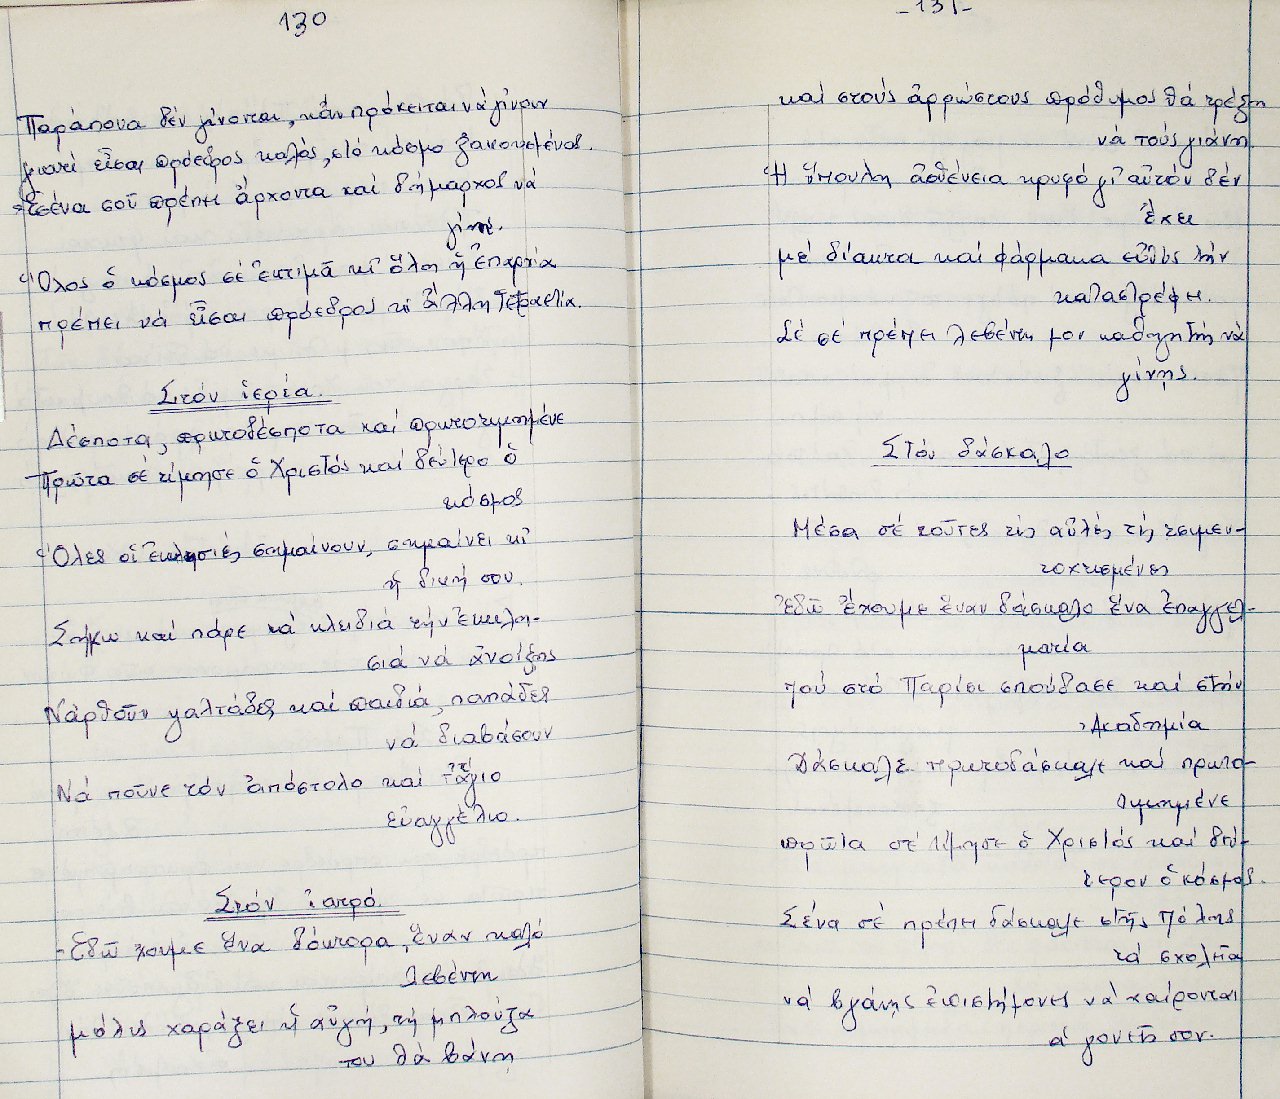 130
Παράπονα δέν γίνονται, κἄν πρόκειται νά γίνουν
γιατί εἶσαι πρόεδρος καλός, στό κόσμο ξακουσμένος.
Ἐσένα σοῦ πρέπει ἄρχοντα καί δήμαρχος νά
γίνης.
Ὅλος ὁ κόσμος σέ ἐκτιμᾶ κι' ὅλη ἡ ἐπαρχία
πρέπει να εἶσαι πρόεδρος κι ἄλλη τετραετία.
Στόν ἱερέα.
Δέσποτα, πρωτοδέσποτα καί πρωτοτιμημένε
Πρῶτα σέ τίμησε ὁ Χριστός καί δεύτερο ὁ
κόσμος
Ὅλες οἱ ἐκκλησιές σημαίνουν, σημαίνει κι'
ἡ δική σου.
Σήκω καί πάρε τά κλειδιά τήν ἐκκλη-
σιά νά ἀνοίξης
Νἀρθοῦν ψαλτάδες καί παιδιά, παπάδες
νά διαβάσουν
Νά ποῦνε τόν ἀπόστολο καί τἅγιο
εὐαγγέλιο.
Στόν ἰατρό.
Ἐδῶ χουμε ἕνα δόκτορα, ἕναν καλό
λεβέντη
μόλις χαράξει ἡ αὐγή, τή μπλούζα
του θά βάνη
-131-
καί στούς ἀρρώστους πρόθυμος θά τρέξη
νά τούς γιάνη
Ἡ ὕπουλη ἀσθένεια κρυφό γι' αὐτόν δέν
ἔχει
μέ δίαιτα καί φάρμακα εὐθύς τήν
καταστρέφει.
Σέ σέ πρέπει λεβέντη μου καθηγητής νά
γίνης.
Στόν δάσκαλο
Μέσα σέ τοῦτες τίς αὐλές τίς τσιμεν-
τοχτισμένες
Ἐδῶ ἔχουμε ἕναν δάσκαλο ἕνα ἐπαγγελ-
ματία
πού στό Παρίσι σπούδασε καί στήν
Ἀκαδημία
Δάσκαλε πρωτοδάσκαλε καί πρωτο-
τιμημένε
πρῶτα σέ τίμησε ὁ Χριστός καί δεύ-
τερον ὁ κόσμος.
Σένα σέ πρέπει δάσκαλε στῆς πόλης
τά σχολειά
νά βγάνης ἐπιστήμονες νά χαίρονται
οἱ γονεῖς σου.